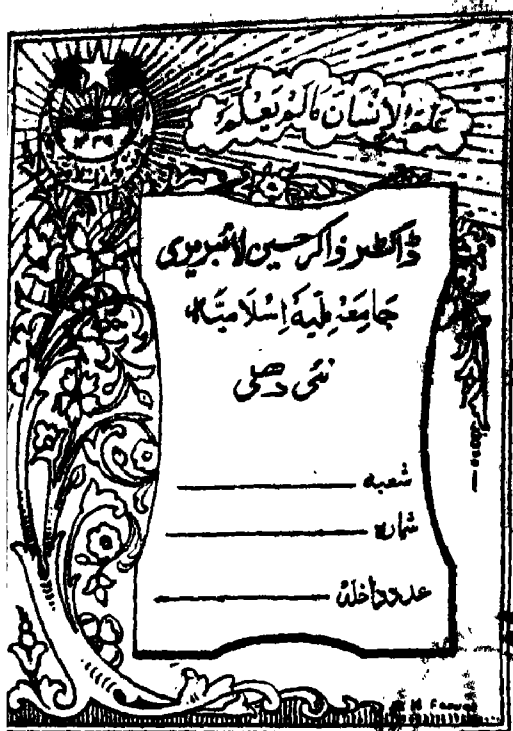 عَلَّمَ الْاِنْسَانَ مَا لَمْ يَعْلَمْ
۱۳۳۹
ڈاکٹر ذاکر حسین لائبریری
جَامِعَہ مِلّیہ اِسْلَامیَّہ
نئی دھلی
شعبہ
شمارہ
عدد داخلہ